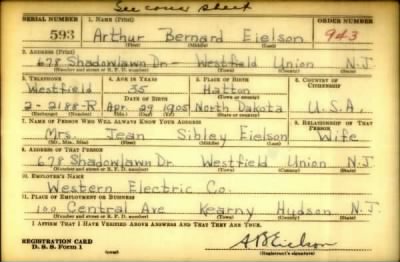 See cover sheet
SERIAL NUMBER 1. NAME (Print) ORDER NUMBER
593 Arthur Bernard Eielson 943
(First) (Middle) (Last)
2. ADDRESS (Print)
678 Shadowlawn Dr- Westfield Union N.J.
(Number and street or R. F. D. number) (Town) (County) (State)
3. TELEPHONE 4. AGE IN YEARS 5. PLACE OF BIRTH 6. COUNTRY OF CITIZENSHIP
Westfield 35 Hatton
DATE OF BIRTH (Town or county)
2-2188-R Apr. 29 1905 North Dakota U.S.A.
(Exchange) (Number) (Mo.) (Day) (Yr.) (State or country)
7. NAME OF PERSON WHO WILL ALWAYS KNOW YOUR ADDRESS 8. RELATIONSHIP OF THAT PERSON
Mrs. Jean Sibley Eielson Wife
(Mr., Mrs., Miss) (First) (Middle) (Last)
9. ADDRESS OF THAT PERSON
678 Shadowlawn Dr. Westfield Union N.J.
(Number and street or R. F. D. number) (Town) (County) (State)
10. EMPLOYER'S NAME
Western Electric Co.
11. PLACE OF EMPLOYMENT OR BUSINESS
100 Central Ave Kearny Hudson N.J.
(Number and street or R. F. D. number) (Town) (County) (State)
I AFFIRM THAT I HAVE VERIFIED ABOVE ANSWERS AND THAT THEY ARE TRUE.
REGISTRATION CARD
D. S. S. Form 1 A B Eielson
(Registrant's signature)